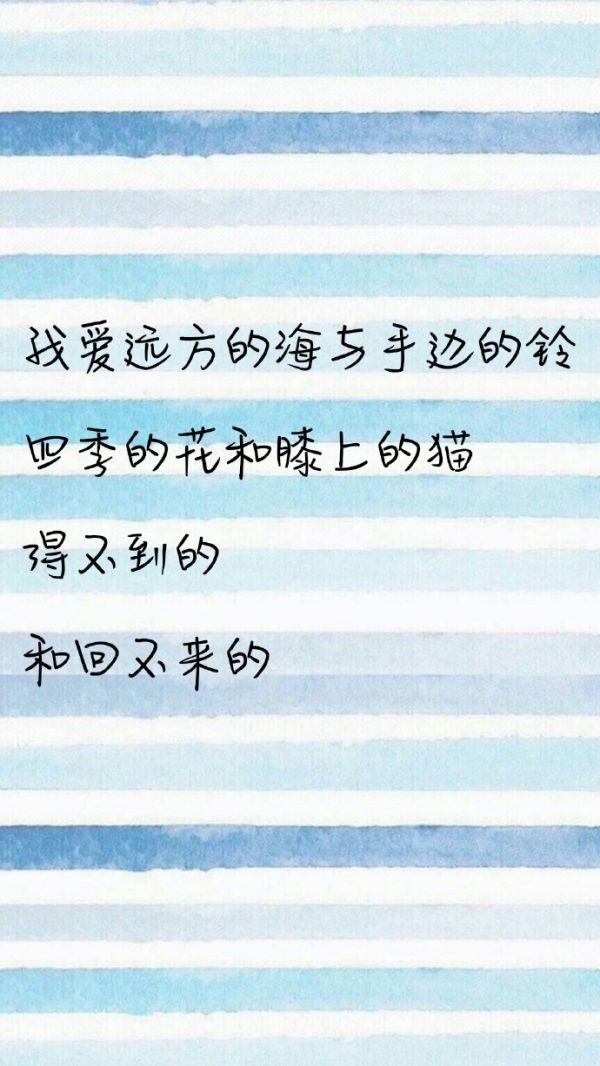 我爱远方的海与手边的铃
四季的花和膝上的猫
得不到的
和回不来的